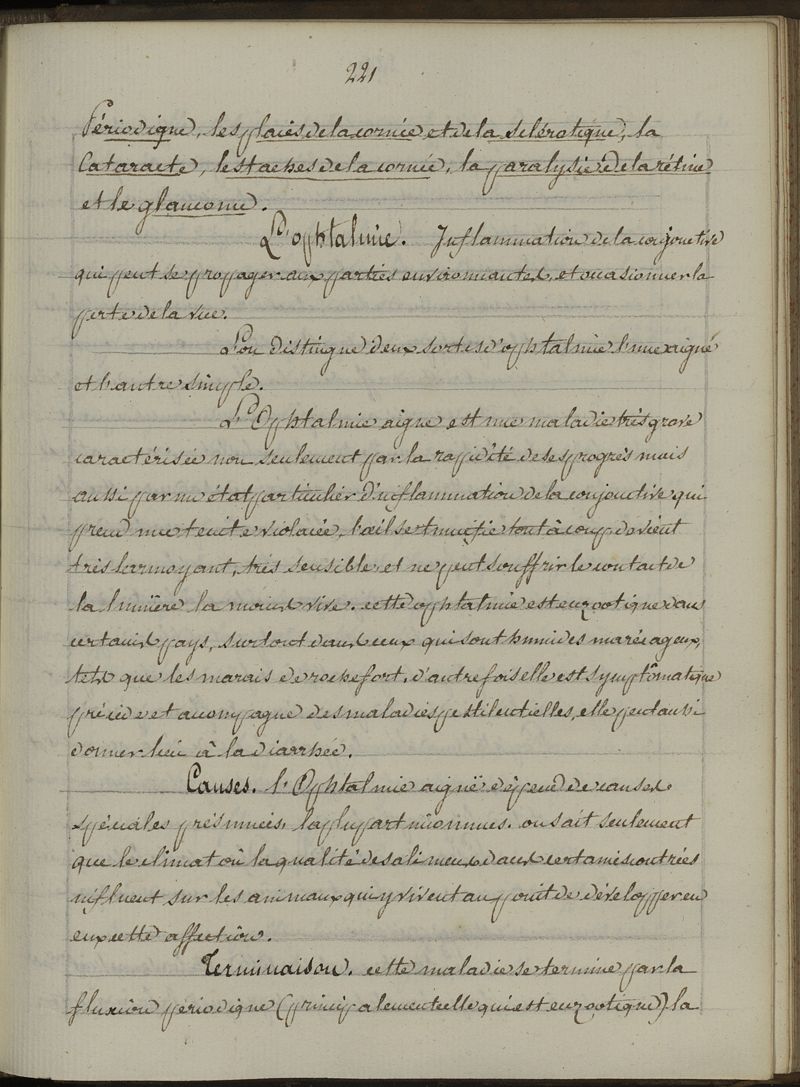 221
Périodique, les plaies de la cornée et de la sclérotique, la
Cataracte, les taches de la cornée, la paralysie de la rétine
et le glaucome.
L'ophtalmie. Inflammation de la conjonctive
qui peut se propager aux parties environnantes et occasionner la
perte de la vue.
L'on distingue deux sortes d'ophtalmie l'une aiguë
et l'autre simple.
L'Ophtalmie aigue est une maladie très grave
caractérisée non seulement par la rapidité de ses progrès mais
aussi par un état particulier d'inflammation de la conjonctive qui
prend une teinte violacée, l'œil se tuméfie tout à coup devient
très larmoyant, très sensible et ne peut souffrir le contact de
la lumière la moins vive. cette ophtalmie est enzootique dans
certains pays, surtout dans ceux qui sont humides marécageux,
tels que les marais de rochefort, d'autrefois elle est symptômatique
précède et accompagne des maladies pestilentielles, elle peut aussi
donner lieu à la diarrhée.
Causes. l'Ophtalmie aiguë dépend de causes
spéciales présumées, la plupart inconnues. on sait seulement
que le climat où la qualité des alimens dans certaines contrées
influent sur les animaux qui y vivent au point de développer en
eux cette affection.
Terminaison. cette maladie se termine par la
fluxion périodique (principalement celle qui est enzootique) la